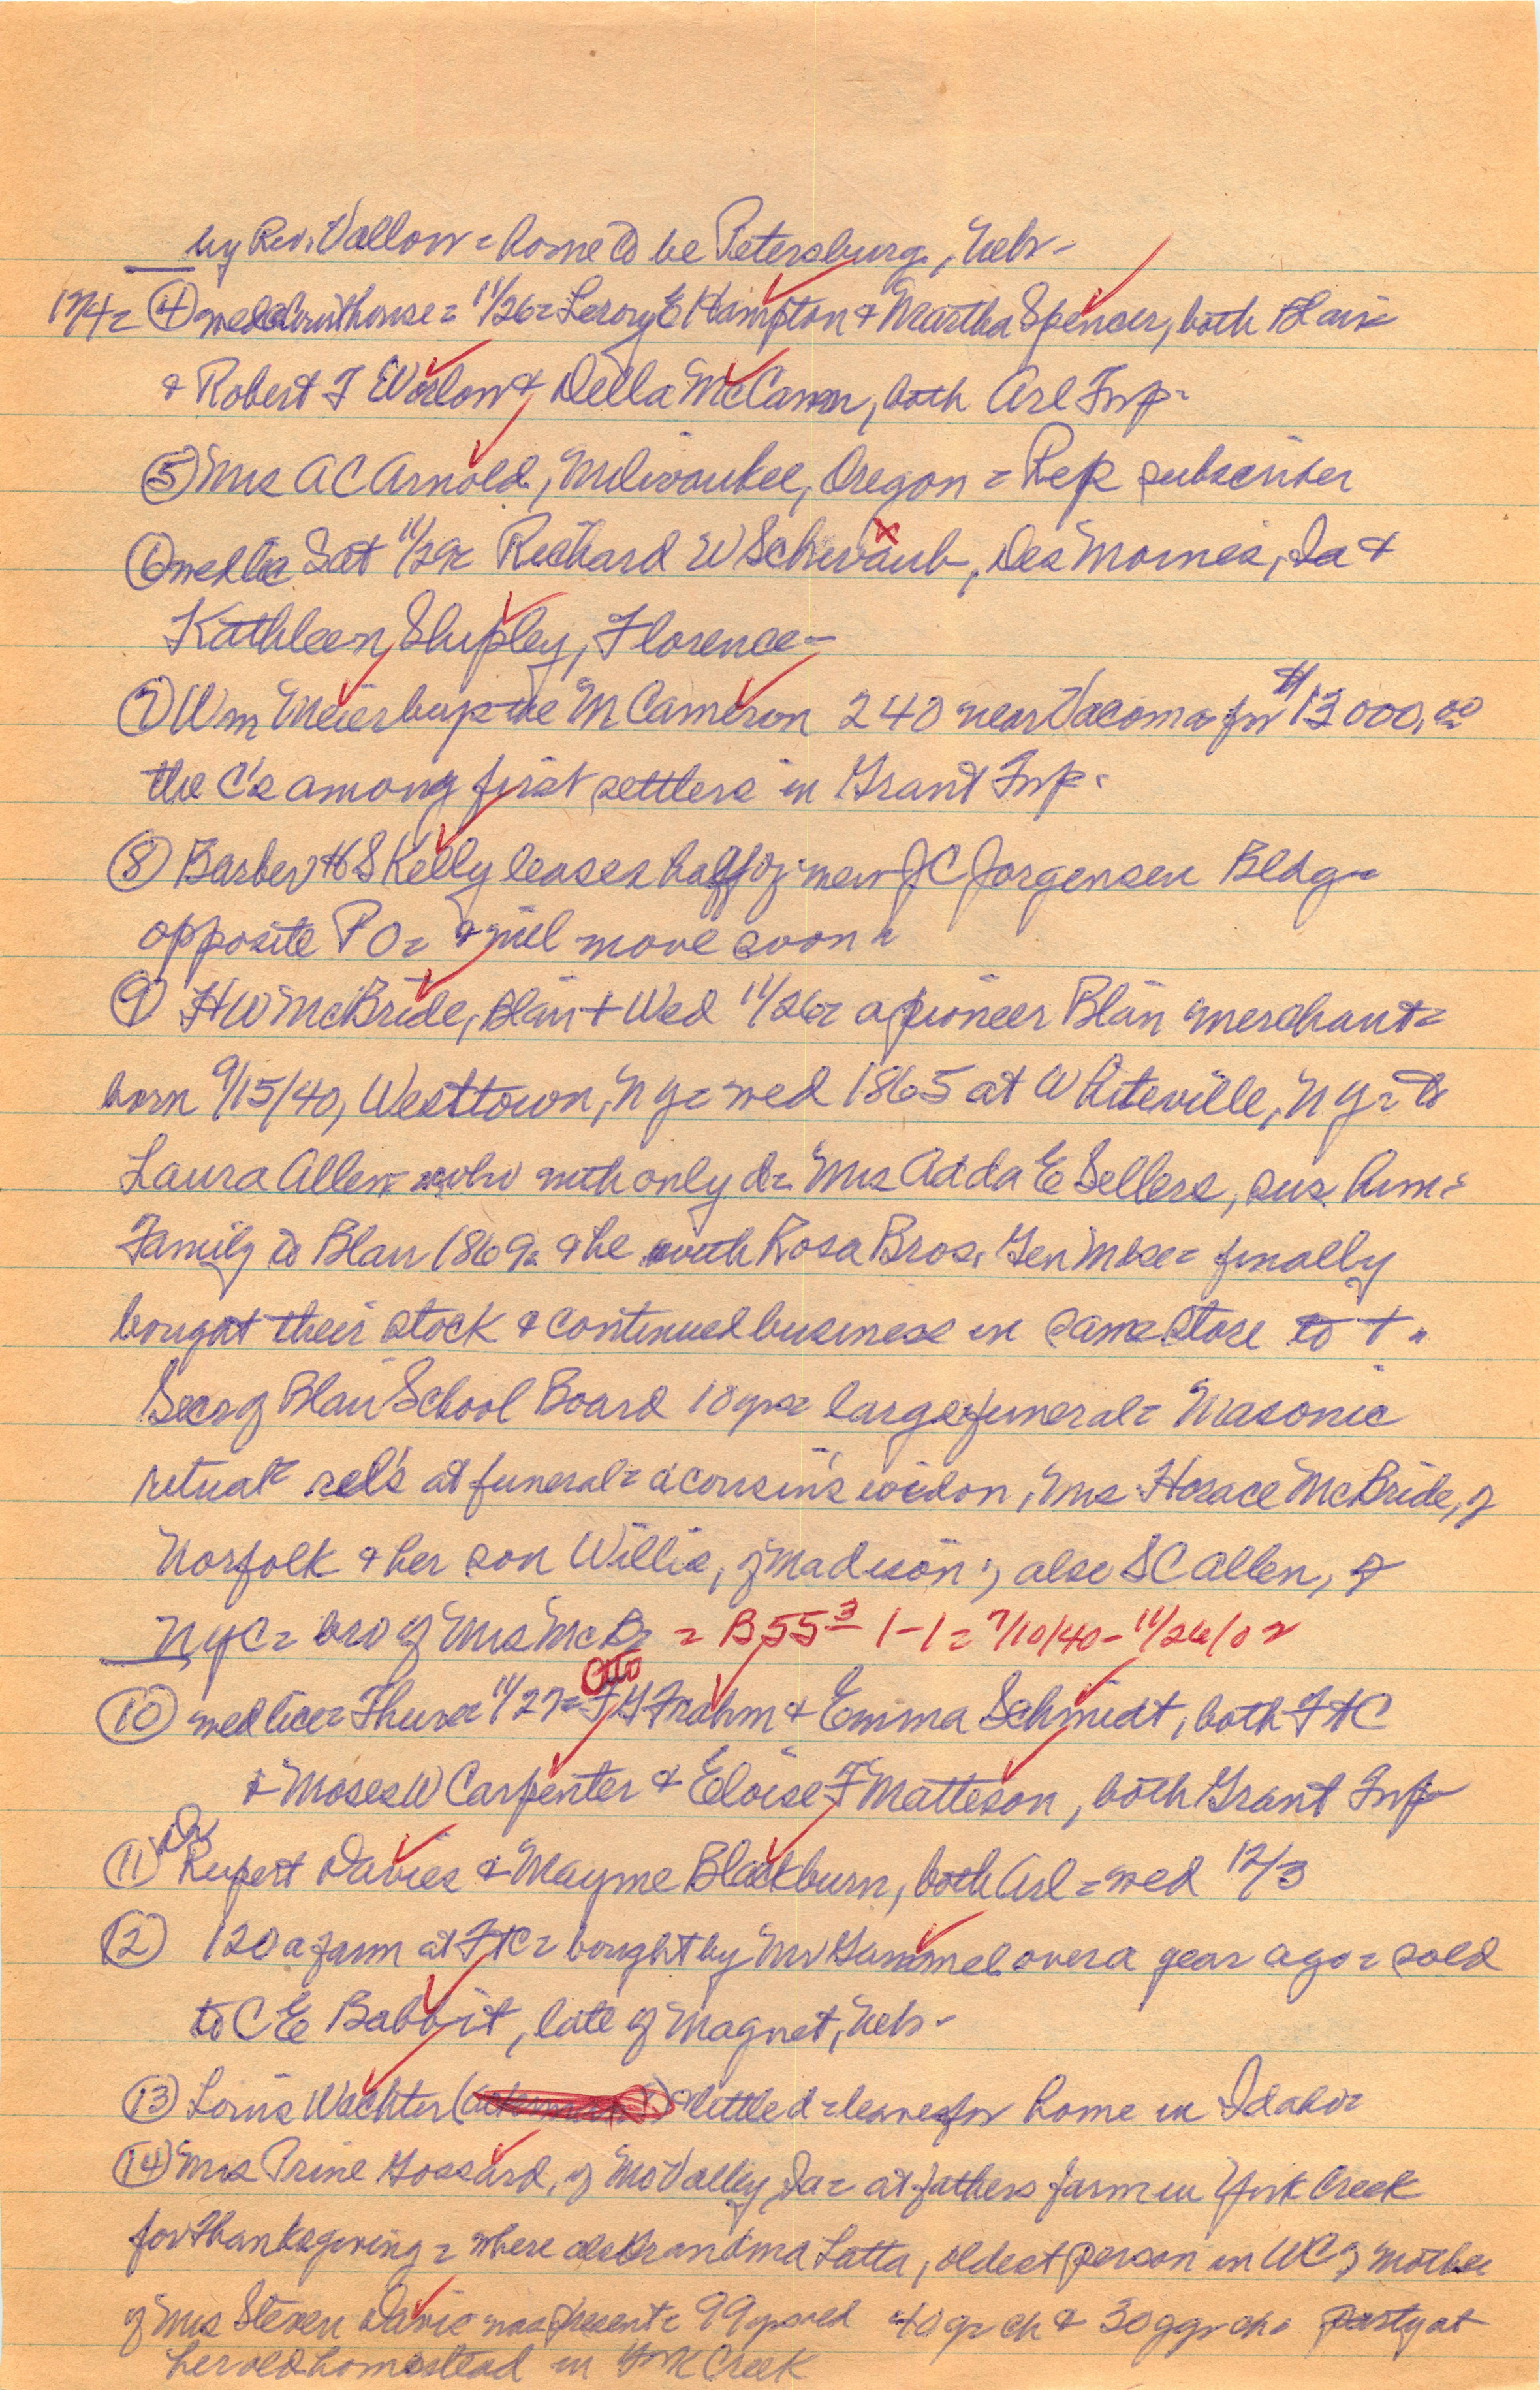 by Rev. Vallow = home to be Petersburg, Nebr -
12/4 = (4) wed courthouse = 11/26 = Leroy E Hampton & Martha Spencer, both Blair
& Robert F Worlow & Della McCann, both Arl Twp -
(5) Mrs A C Arnold, Milwaukee, Oregon = Rep subscriber
(6) wed lic Sat 11/29 = Richard W Schwaub, Des Moines, Ia &
Kathleen Shipley, Florence -
(7) Wm Meier buys the M Cameron 240 near Tacoma for $13 000.00
the C's among first settlers in Grant Twp -
(8) Barber H S Kelly leases half of new J C Jorgensen Bldg =
opposite P O = & will move soon =
(9) H W McBride, Blair + Wed 11/26 = a pioneer Blair merchant =
born 9/15/40, Westtown, N Y = wed 1865 at Whiteville, N Y = to
Laura Allen who with only d = Mrs Adda E Sellers, sus him =
Family to Blair 1869 = & he with Rosa Bros. Gen Mdse = finally
bought their stock & continued business in same store to + =
Secr of Blair School Board 18 yrs = large funeral = Masonic
ritual = rel's at funeral = a cousin's widow, Mrs Horace McBride, of
Norfolk & her son Willis, of Madison; also S C Allen, of
NYC = bro of Mrs McB = B 55 3 1-1 = 7/10/40 - 11/26/02
Otto
(10) wed lic = Thurs 11/27 = F G Frahm & Emma Schmidt, both Ft C
& Moses W Carpenter & Eloise F Matteson, both Grant Twp
(11) Dr Rupert Davies & Mayme Blackburn, both Arl = wed 12/3
(12) 120 a farm at Ft C = bought by Mr Hammel over a year ago = sold
to C E Babbit, late of Magnet, Nebr -
(13) Louis Wachter & little d = leaves for home in Idaho =
(14) Mrs Prine Gossard, of Mo Valley, Ia = at fathers farm in York Creek
for Thanksgiving = where also Grandma Latta, oldest person in WC & mother
of Mrs Steven Davis was present = 99 yrs old 40 gr ch & 30 ggr ch = party at
her old homestead in York Creek